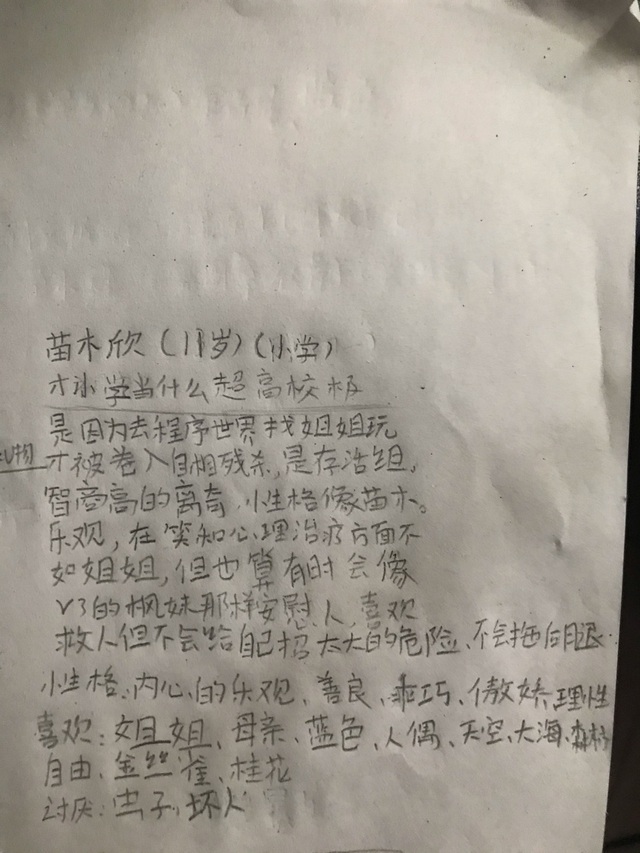 苗木欣（11岁）（小学）
才小学当什么超高校极
是因为去程序世界找姐姐玩
才被卷入自相残杀,是存活组,
智商高的离奇,性格像苗木。
乐观,在笑和心理治疗方面不
如姐姐,但也算有时会像
V3的枫妹那样安慰人,喜欢
救人但不会给自己招太大的危险、不会拖后腿.
性格、内心的乐观、善良、乖巧、傲娇、理性
喜欢:姐姐、母亲、蓝色、人偶、天空、大海、森林
自由、金丝雀、桂花
讨厌:虫子,坏人